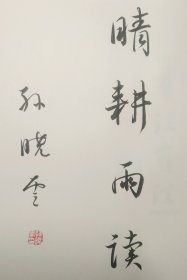 晴耕雨读
孙晓云